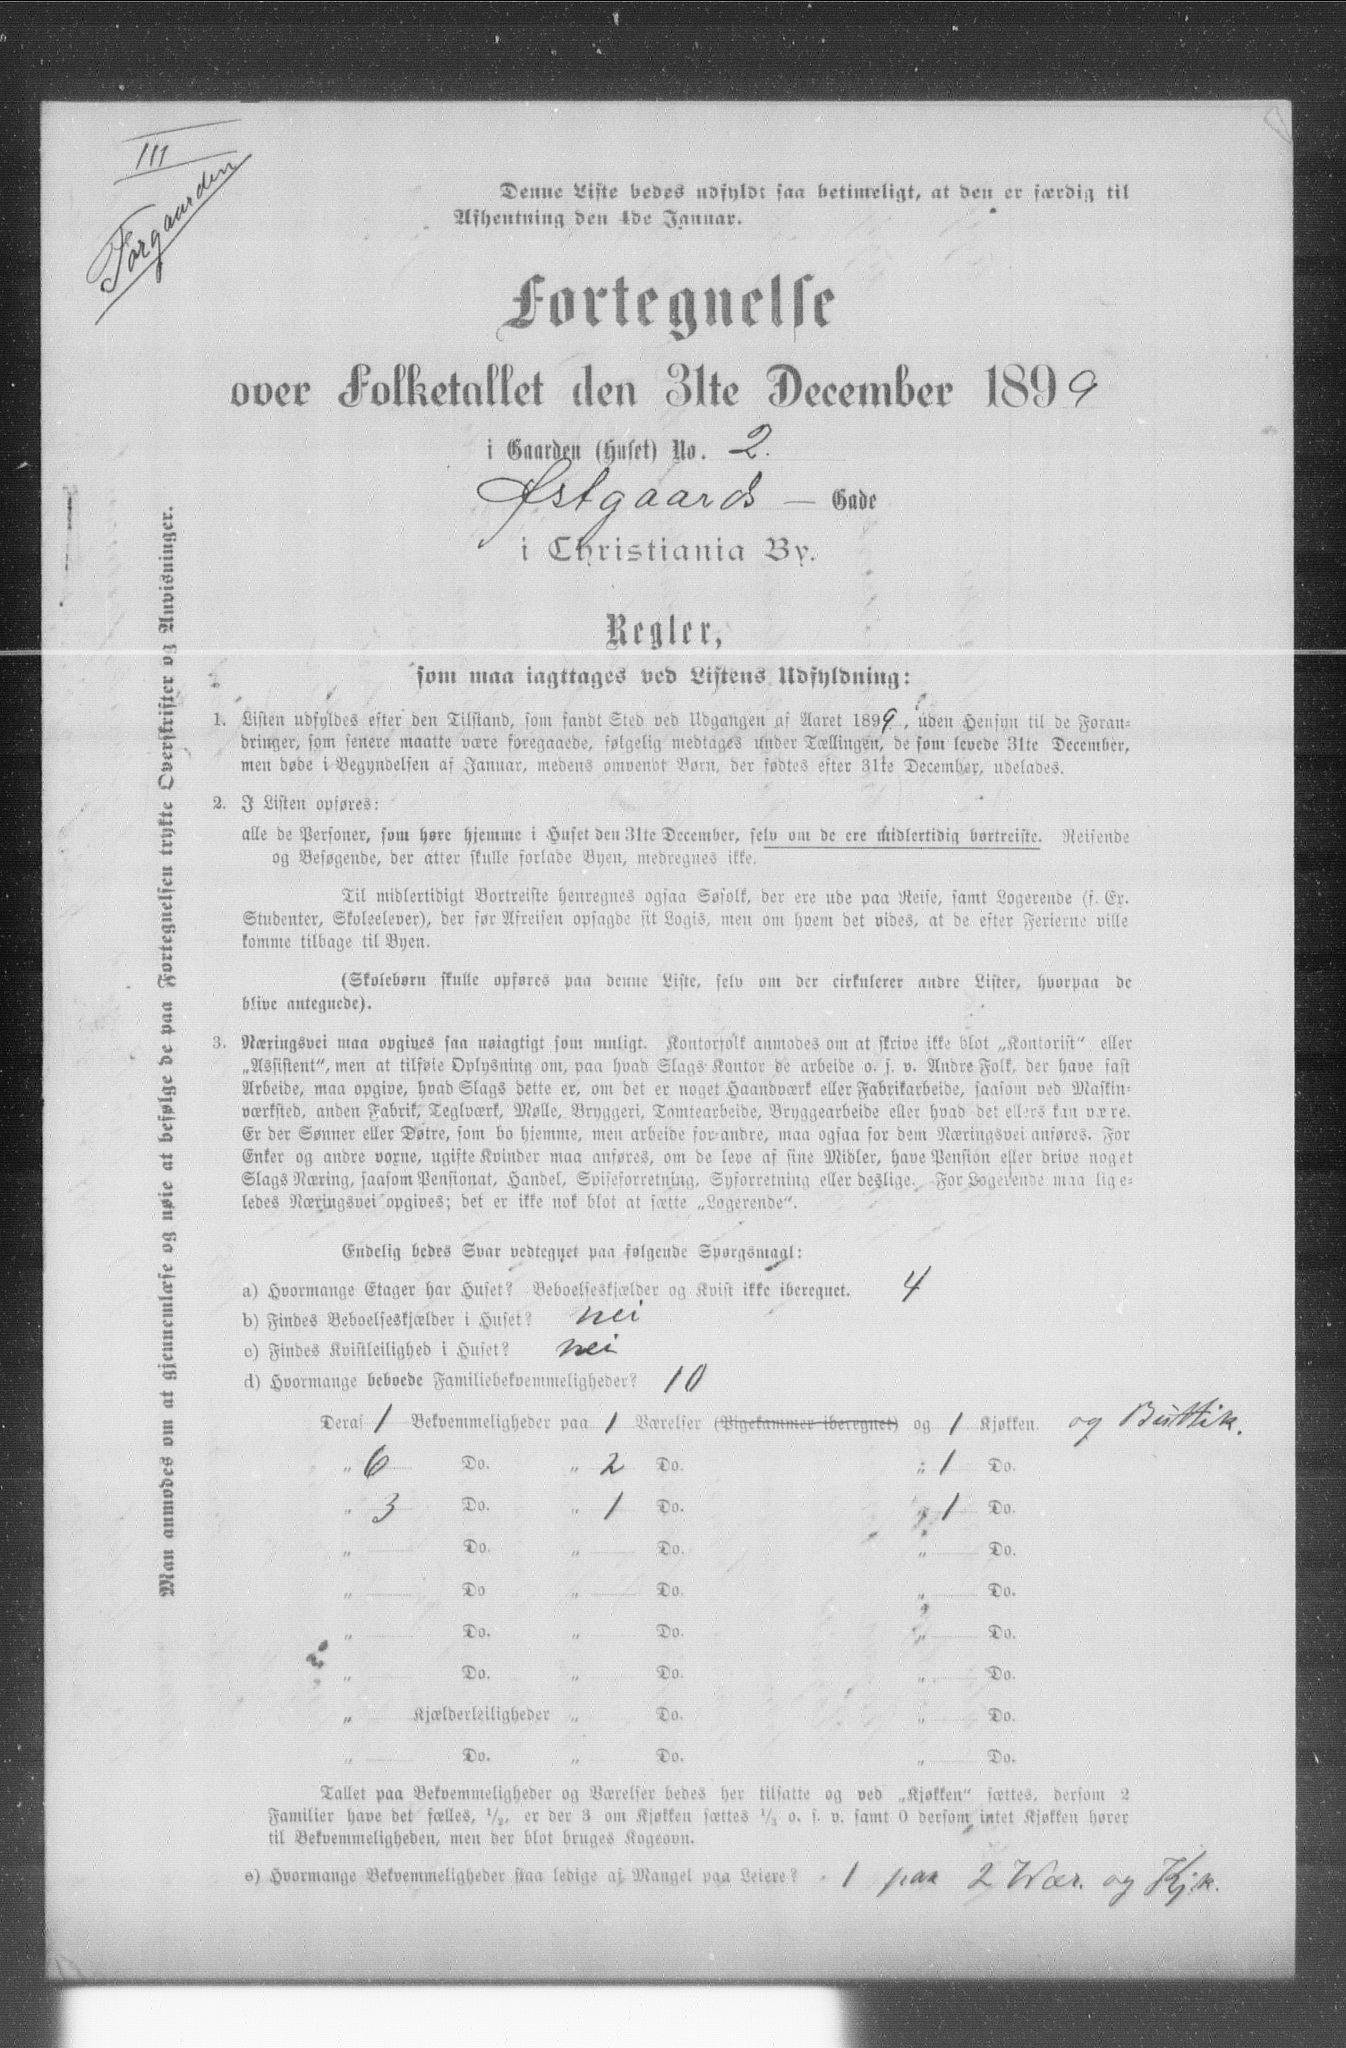 III
Forgaarden
Denne Liste bedes udfyldt saa betimeligt, at den er færdig til
Afhentning den 4de Januar.
Fortegnelse
over Folketallet den 31te December 1899
i Gaarden (Huset) No. 2.
Østgaards — Gade
i Christiania By.
Regler,
som maa iagttages ved Listens Udfyldning:
1. Listen udfyldes efter den Tilstand, som fandt Sted ved Udgangen af Aaret 1899, uden Hensyn til de Foran-
dringer, som senere maatte være foregaaede, følgelig medtages under Tællingen, de som levede 31te December,
men døde i Begyndelsen af Januar, medens omvendt Børn, der fødtes efter 31te December, udelades.
2. I Listen opføres:
alle de Personer, som høre hjemme i Huset den 31te December, selv om de ere midlertidig bortreiste. Reisende
og Besøgende, der atter skulle forlade Byen, medregnes ikke.
Til midlertidigt Bortreiste henregnes ogsaa Søfolk, der ere ude paa Reise, samt Logerende (f. Ex.
Studenter, Skoleelever), der før Afreisen opsagde sit Logis, men om hvem det vides, at de efter Ferierne ville
komme tilbage til Byen.
(Skolebørn skulle opføres paa denne Liste, selv om der cirkulerer andre Lister, hvorpaa de
blive antegnede).
3. Næringsvei maa opgives saa nøiagtigt som muligt. Kontorfolk anmodes om at skrive ikke blot „Kontorist“ eller
„Assistent“, men at tilføie Oplysning om, paa hvad Slags Kontor de arbeide o. s. v. Andre Folk, der have fast
Arbeide, maa opgive, hvad Slags dette er, om det er noget Haandværk eller Fabrikarbeide, saasom ved Maskin-
værksted, anden Fabrik, Teglværk, Mølle, Bryggeri, Tomtearbeide, Bryggearbeide eller hvad det ellers kan være.
Er der Sønner eller Døtre, som bo hjemme, men arbeide for andre, maa ogsaa for dem Næringsvei anføres. For
Enker og andre voxne, ugifte Kvinder maa anføres, om de leve af sine Midler, have Pension eller drive noget
Slags Næring, saasom Pensionat, Handel, Spiseforretning, Syforretning eller deslige. For Logerende maa lige-
ledes Næringsvei opgives; det er ikke nok blot at sætte „Logerende“.
Endelig bedes Svar vedtegnet paa følgende Spørgsmaal:
a) Hvormange Etager har Huset? Beboelseskjælder og Kvist ikke iberegnet. 4
b) Findes Beboelseskjælder i Huset? nei
c) Findes Kvistleilighed i Huset? nei
d) Hvormange beboede Familiebekvemmeligheder? 10
Deraf 1 Bekvemmeligheder paa 1 Værelser (Pigekammer iberegnet) og 1 Kjøkken. og Buttik.
„ 6 Do. „ 2 Do. „ 1 Do.
„ 3 Do. „ 1 Do. „ 1 Do.
„ Do. „ Do. „ Do.
„ Do „ Do. „ Do.
„ Do. „ Do. „ Do.
„ Do. „ Do. „ Do.
„ Kjælderleiligheder „ Do. „ Do.
„ Do. „ Do. „ Do.
Tallet paa Bekvemmeligheder og Værelser bedes her tilsatte og ved „Kjøkken“ sættes, dersom 2
Familier have det fælles, 1/2, er der 3 om Kjøkken sættes 1/3 o. s. v. samt 0 dersom intet Kjøkken hører
til Bekvemmeligheden, men der blot bruges Kogeovn.
e) Hvormange Bekvemmeligheder staa ledige af Mangel paa Leiere? 1 paa 2 Vær. og Kjk.
Man anmodes om at gjennemlæse og nøie at befølge de paa Fortegnelsen trykte Overskrifter og Anvisninger.